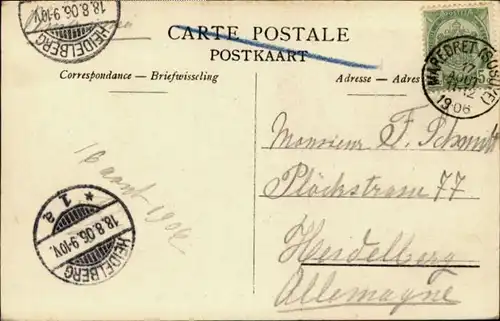 HEIDELBERG
18.8.06.9-10V.
CARTE POSTALE
POSTKAART
Correspondance — Briefwisseling
Adresse — Adres
17
AOUT
11-12
1906
5
Monsieur F. Schmitt
Plöckstrasse 77
Heidelberg
Allemagne
16 aout 1906
* 1 a
18.8.06.9-10V.
HEIDELBERG